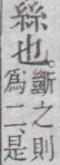 絲也。斷之則
爲二、是